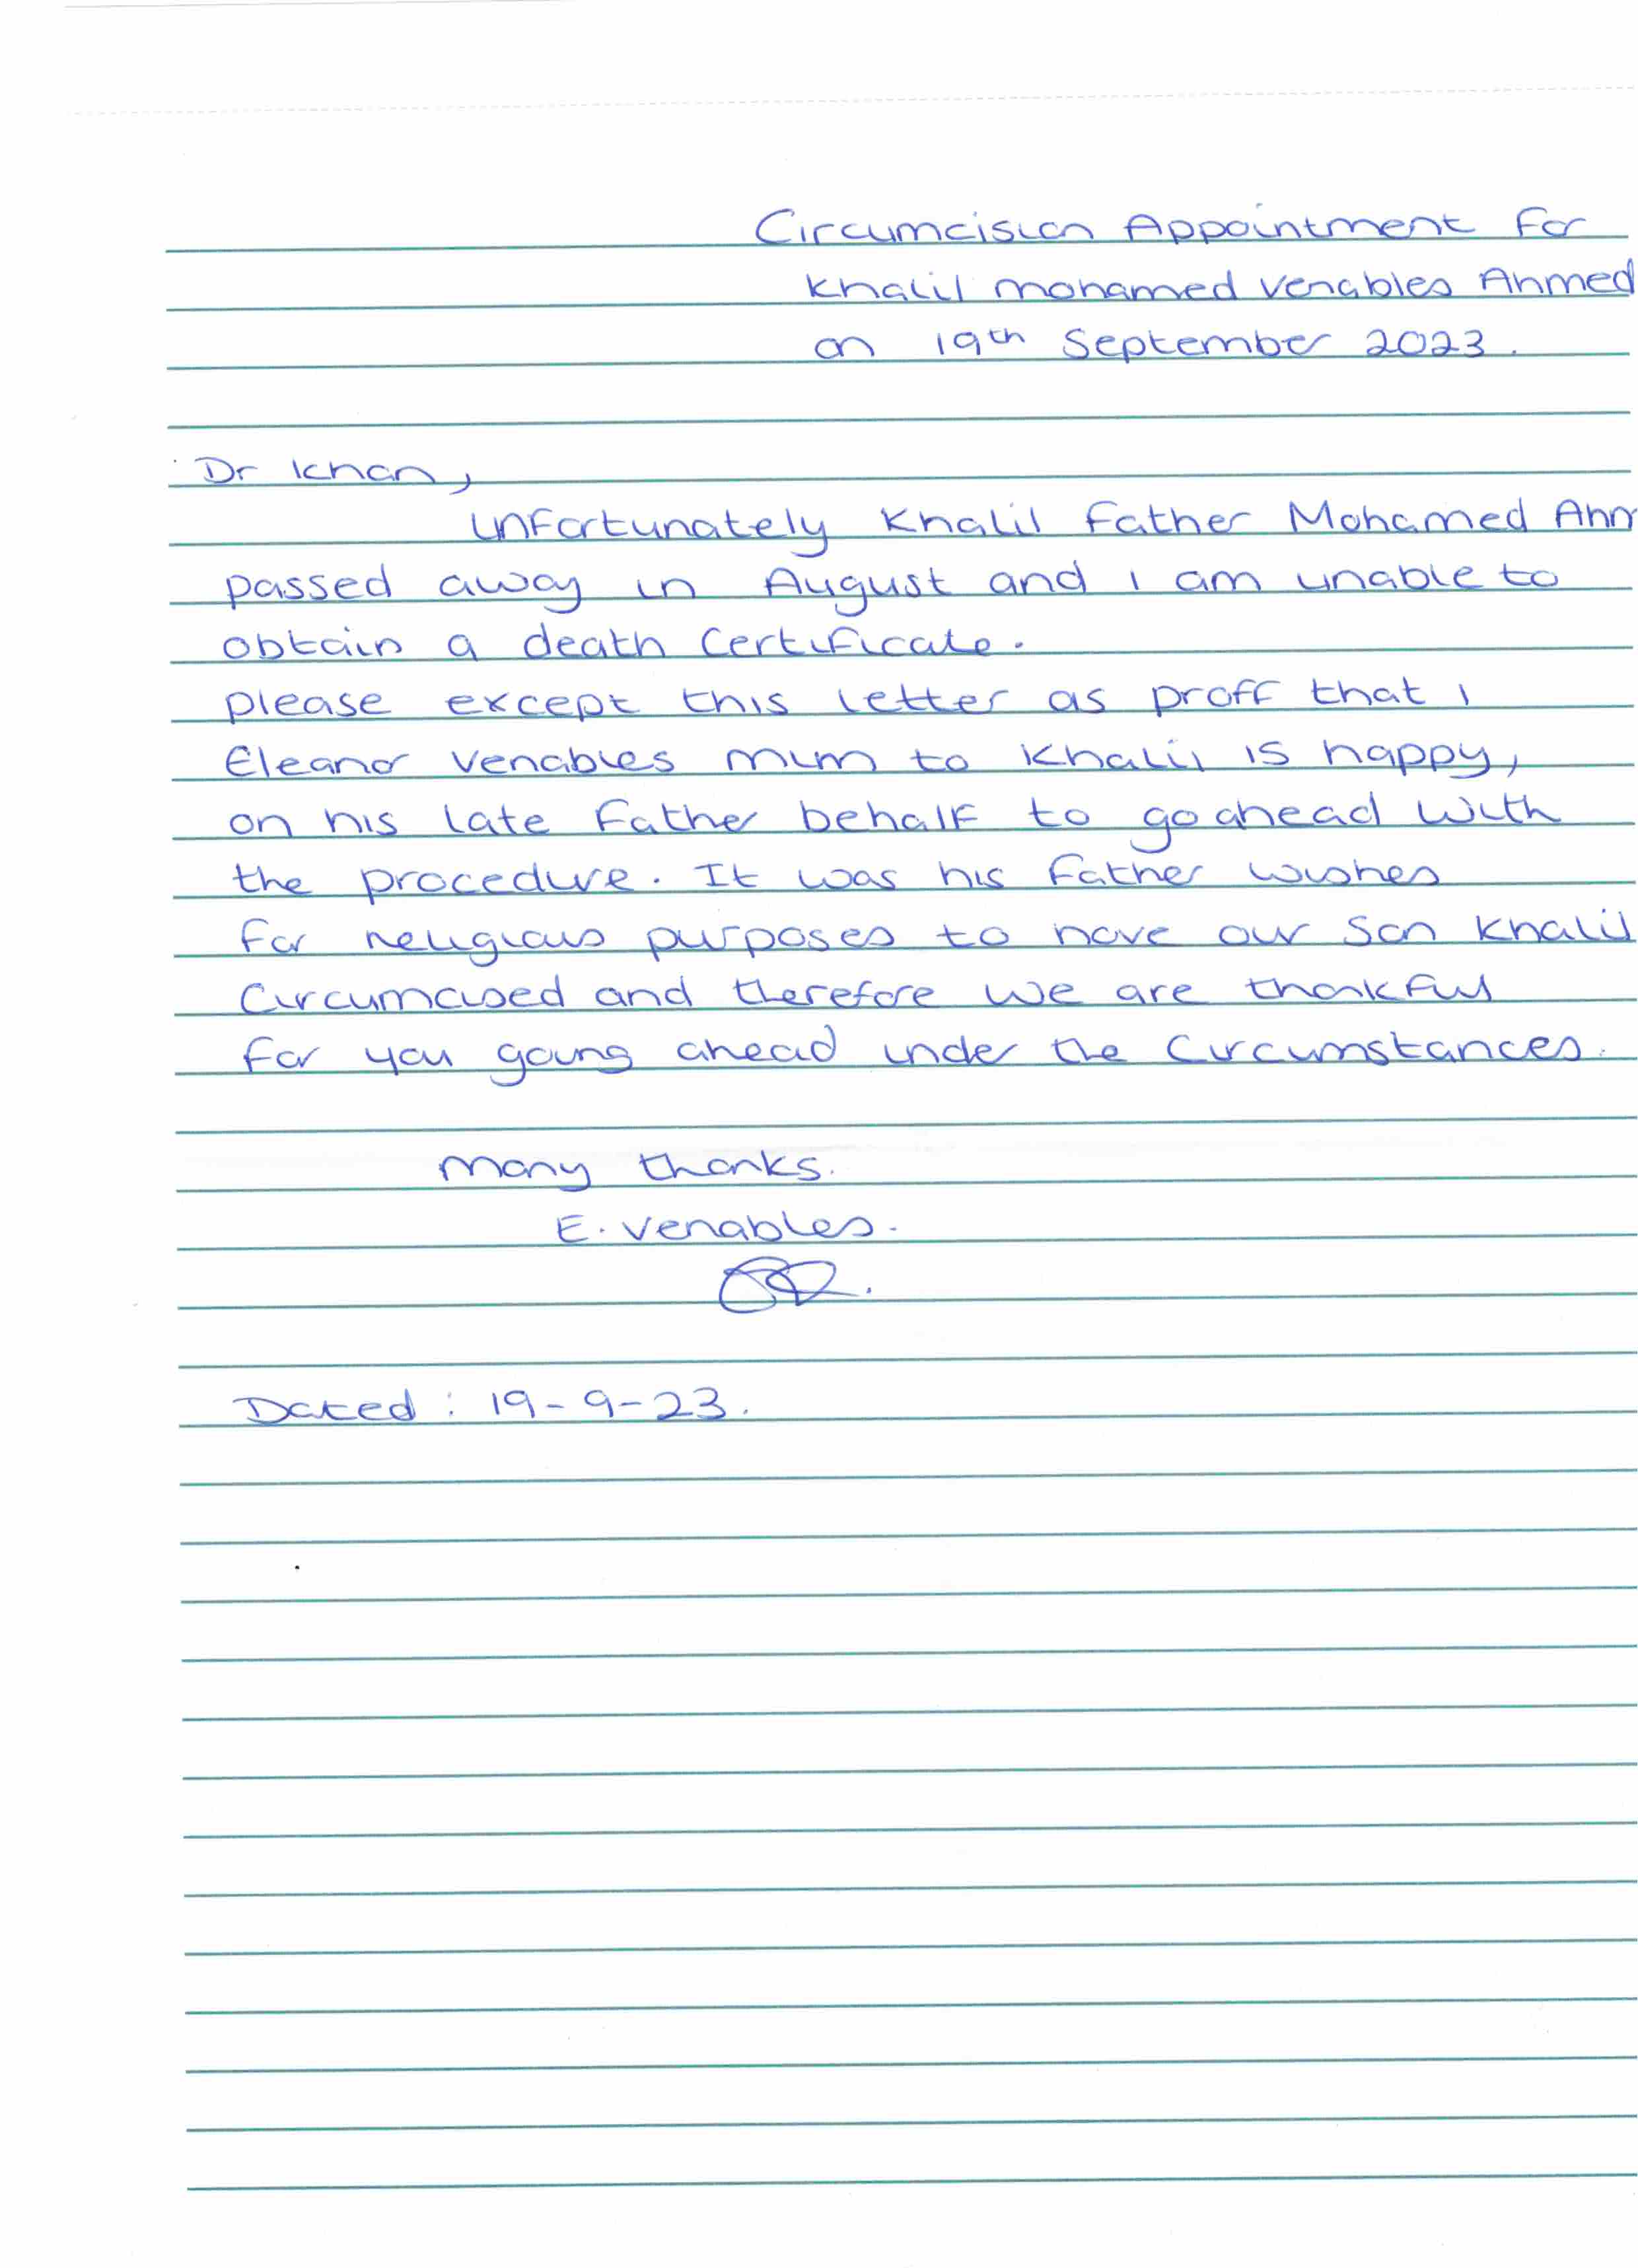 Circumcision Appointment For
Khalil mohamed Venables Ahmed
on 19th September 2023.
Dr Khan,
Unfortunately Khalil Father Mohamed Ahm
passed away in August and I am unable to
obtain a death Certificate.
please except this letter as proff that I
Eleanor Venables mum to Khalil is happy,
on his late Father behalf to go ahead with
the procedure. It was his Father wishes
for religious purposes to have our Son Khalil
Circumcised and therefore we are thankful
for you going ahead under the Circumstances.
Many thanks.
E. Venables.
Dated : 19-9-23.